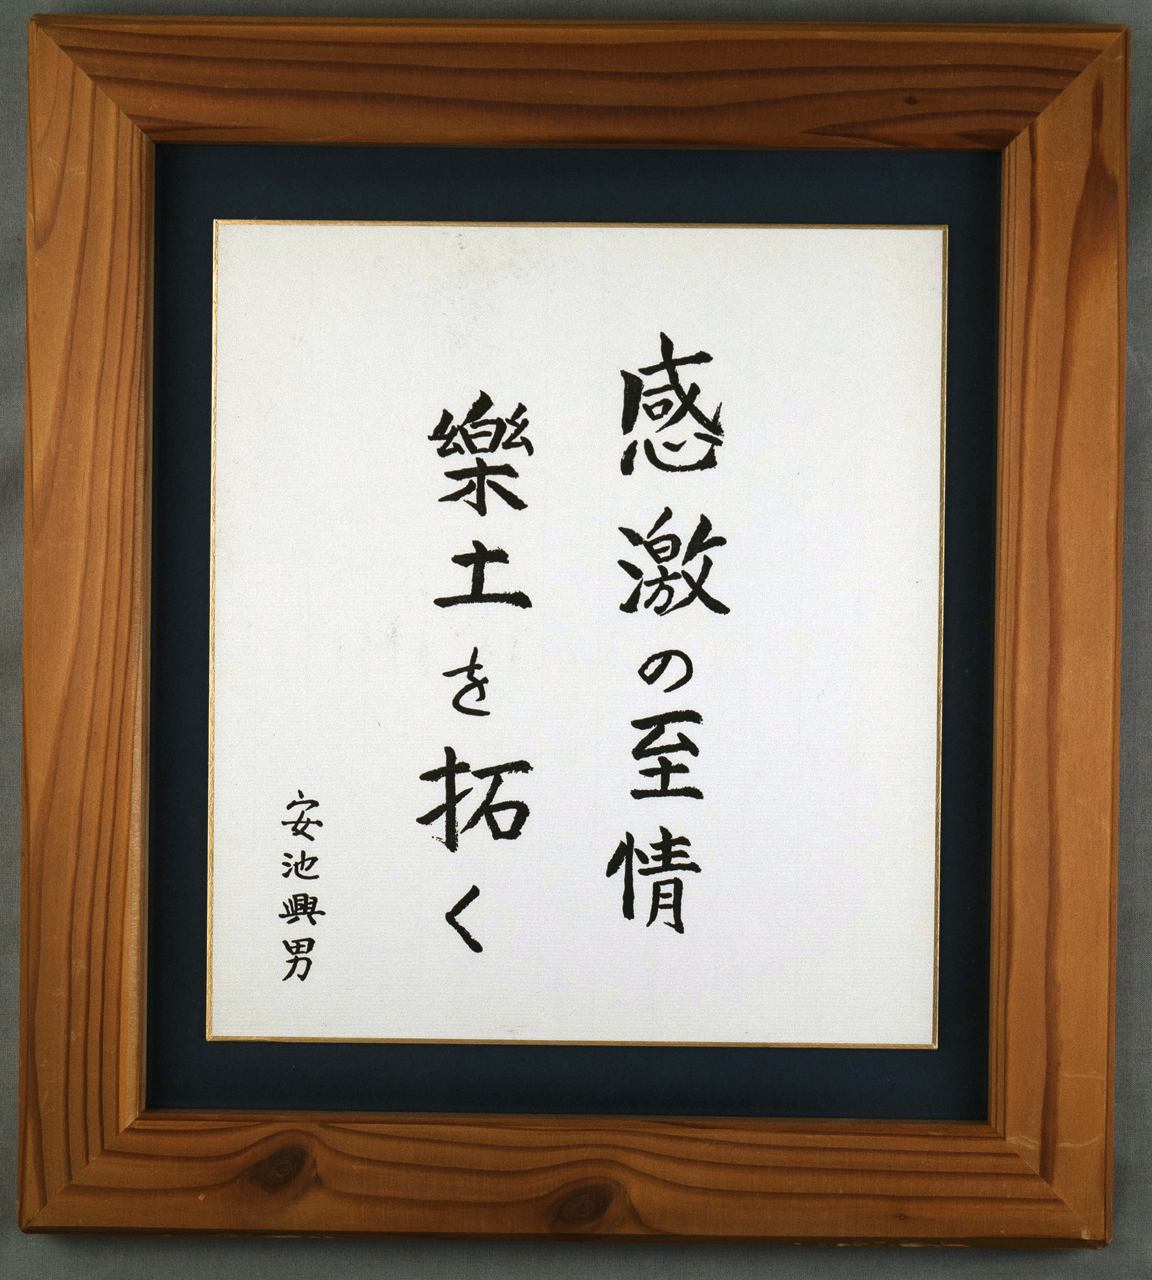 感激の至情
樂土を拓く
安池興男